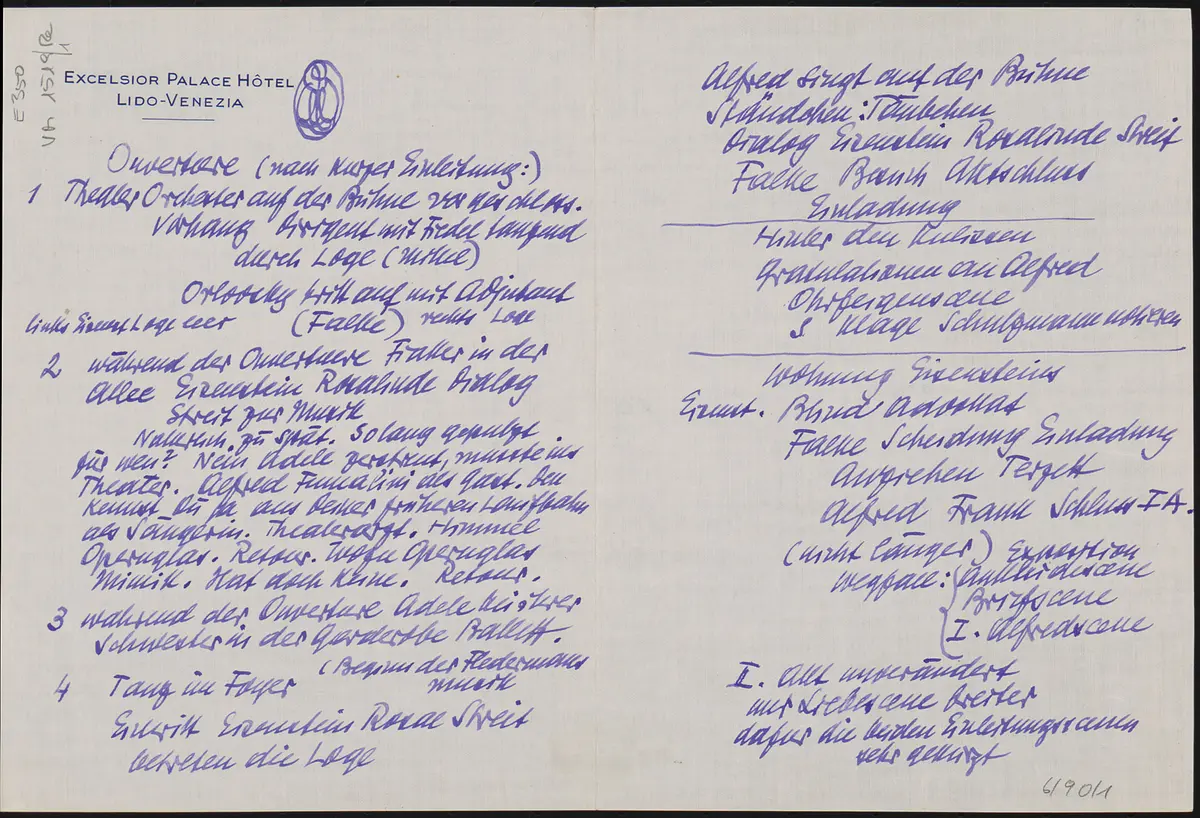 E 350
VM 1519 Re/1
EXCELSIOR PALACE HÔTEL
LIDO-VENEZIA
Ouvertuere (nach kurzer Einleitung:)
1 Theater Orchester auf der Bühne vor geschloss.
Vorhang Dirigent mit Fiedel tanzend
durch Loge (Mitte)
Orlovsky tritt auf mit Adjutant
links Eisenst Loge leer (Falke) rechts Loge
2 während der Ouvertuere Fiaker in der
Allee Eisenstein Rosalinde Dialog
Streit zur Musik
Natürlich zu spät. Solang geputzt
für wen? Nein Adele zerstreut, musste ins
Theater. Alfred als Gast. Den
kennst Du ja aus Deiner früheren Laufbahn
als Sängerin. Theaterarzt. Himmel
Opernglas. Retour. Wofür Opernglas
Mimik. Hat doch keine. Retour.
3 während der Ouverture Adele bei ihrer
Schwester in der Garderobe Ballett.
(Beginn der Fledermaus
4 Tanz im Foyer musik
Eintritt Eisenstein Rosal Streit
betreten die Loge
Alfred singt auf der Bühne
Ständchen: Täubchen
Dialog Eisenstein Rosalinde Streit
Falke Besuch Aktschluss
Einladung
Hinter den Kulissen
Gratulationen an Alfred
Ohrfeigenscene
Klage Schutzmann notieren
Wohnung Eisensteins
Eisenst. Blind Advokat
Falke Scheidung Einladung
Anziehen Terzett
Alfred Frank Schluss I A.
(nicht länger) Exposition
wegfall: Ankleidescene
Briefscene
I. Alfredscene
II. Akt unverändert
nur Liebescene breiter
dafür die beiden Einleitungsscenen
sehr gekürzt
6/90/1